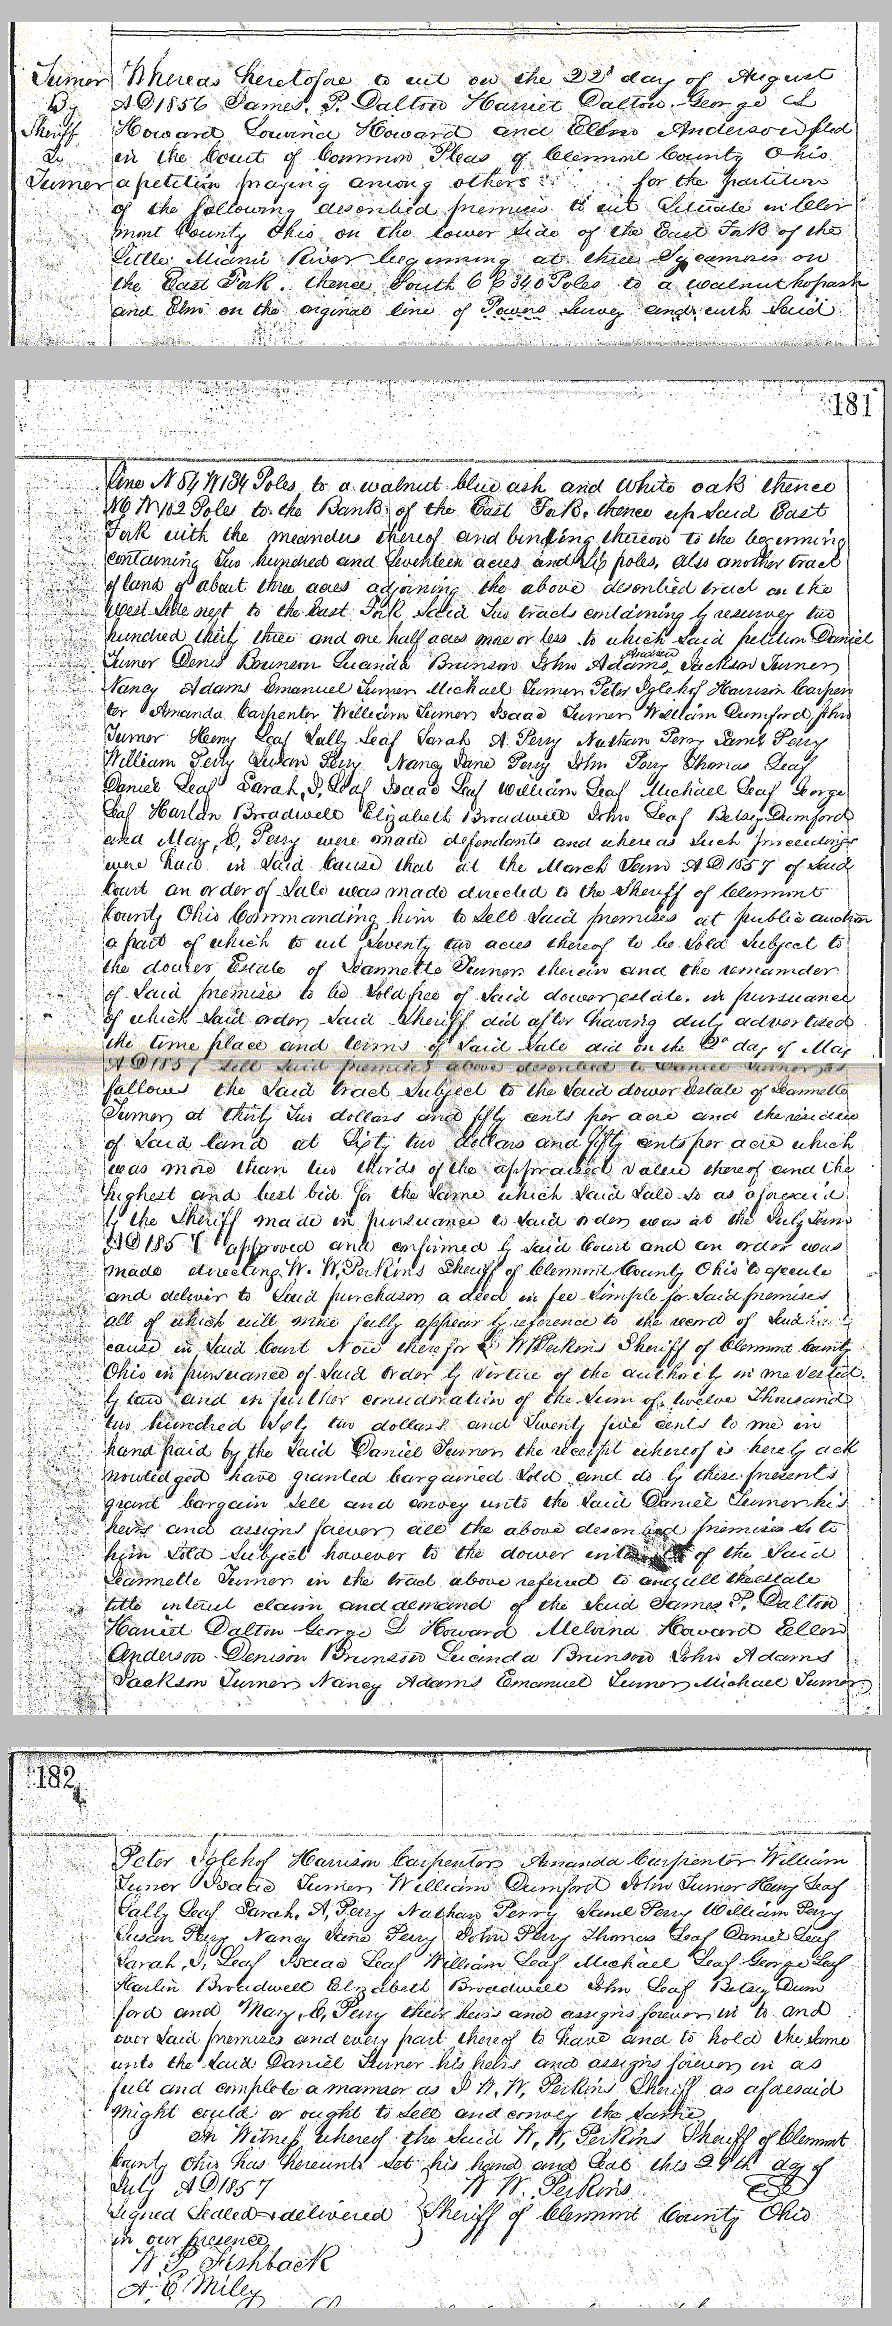 Turner
By
Sheriff
To
Turner
Whereas heretofore to wit on the 22d day of August
AD 1856 James. P. Dalton Harriet Dalton George L
Howard Howard and Ellen Anderson filed
in the Court of Common Pleas of Clermont County Ohio
a petition praying among others for the partition
of the following described premises to wit Situate in Cler
mont County Ohio on the lower side of the East Fork of the
Little Miami River beginning at three Sycamores on
the East Fork. thence South 6 E 340 Poles to a walnut
and Elm on the orginal line of Powers Survey and with Said
181
line N 84 W 134 Poles to a walnut blue ash and white oak thence
N6 W 102 Poles to the Bank of the East Fork. thence up Said East
Fork with the meanders thereof and binding thereon to the beginning
containing Two hundred and Seventeen acres and poles. Also another tract
of land of about three acres adjoining the above described tract on the
west Side next to the East Fork Said Two tracts containing by resurvey two
hundred thirty three and one half acres more or less to which Said petition Daniel
Turner Denis Brunson Lucinda Brunson John Adams, Jackson Turner
Nancy Adams Emanuel Turner Michael Turner Peter Iglehof Harrison Carpen
ter Amanda Carpenter William Turner Isaac Turner William Dumford John
Turner Henry Leaf Sally Leaf Sarah A. Perry Nathan Perry Saml Perry
William Perry Susan Perry Nancy Jane Perry John Perry Thomas Leaf
Daniel Leaf Sarah, J, Leaf Isaac Leaf William Leaf Michael Leaf George
Leaf Harlan Broadwell Elizabeth Broadwell John Leaf Betsy Dumford
and Mary, C, Perry were made defendants and whereas Such proceedings
were had in Said Cause that at the March Term AD 1857 of Said
Court an order of Sale was made directed to the Sheriff of Clermont
County Ohio Commanding him to Sell Said premises at public auction
a part of which to wit Seventy two acres thereof to be Sold Subject to
the dower Estate of Jeannette Turner therein and the remainder
of Said premises to be Sold free of Said dower estate. in pursuance
of which Said order Said Sheriff did after having duly advertised
the time place and terms of Said Sale did on the 2d day of May
AD 1857 Sell Said premises above described to Daniel Turner as
follows the Said tract Subject to the Said dower Estate of Jeannette
Turner at thirty Two dollars and fifty cents per acre and the residue
of Said land at Sixty two dollars and fifty cents per acre which
was more than two thirds of the appraised value thereof and the
highest and best bid for the Same which Said Sale So as aforesaid
by the Sheriff made in pursuance to Said order was at the July Term
AD 1857 approved and confirmed by Said Court and an order was
made directing W. W. Perkins Sheriff of Clermont County Ohio to execute
and deliver to Said purchaser a deed in fee Simple for Said premises
all of which will more fully appear by reference to the record of Said
cause in Said Court Now therefor I W W Perkins Sheriff of Clermont County
Ohio in pursuance of Said order by virtue of the authority in me vested
by law and in further consideration of the Sum of twelve Thousand
two hundred Sixty two dollars and Twenty five cents to me in
hand paid by the Said Daniel Turner the receipt whereof is hereby ack
nowledged have granted bargained Sold and do by these presents
grant bargain Sell and convey unto the Said Daniel Turner his
heirs and assigns forever all the above described premises So to
him Sold Subject however to the dower interest of the Said
Jeannette Turner in the tract above referred to and all the estate
title interest claim and demand of the Said James P. Dalton
Harriet Dalton George L Howard Melvina Howard Ellen
Anderson Denison Brunson Lucinda Brunson John Adams
Jackson Turner Nancy Adams Emanuel Turner Michael Turner
182
Peter Iglehof Harrison Carpenter Amanda Carpenter William
Turner Isaac Turner William Dumford John Turner Henry Leaf
Sally Leaf Sarah, A, Perry Nathan Perry Saml Perry William Perry
Susan Perry Nancy Jane Perry John Perry Thomas Leaf Daniel Leaf
Sarah, J, Leaf Isaac Leaf William Leaf Michael Leaf George Leaf
Harlin Broadwell Elizabeth Broadwell John Leaf Betsy Dum
ford and Mary, C, Perry their heirs and assigns forever in to and
over Said premises and every part thereof to have and to hold the Same
unto the Said Daniel Turner his heirs and assigns forever in as
full and complete a manner as I W, W, Perkins Sheriff as aforesaid
might could or ought to Sell and convey the Same
In Witness whereof the Said W, W, Perkins Sheriff of Clermont
County Ohio has hereunto Set his hand and Seal this 29th day of
July AD 1857 W W. Perkins
Signed Sealed & delivered Sheriff of Clermont County Ohio
in our presence
W. P. Fishback
A. E. Miley